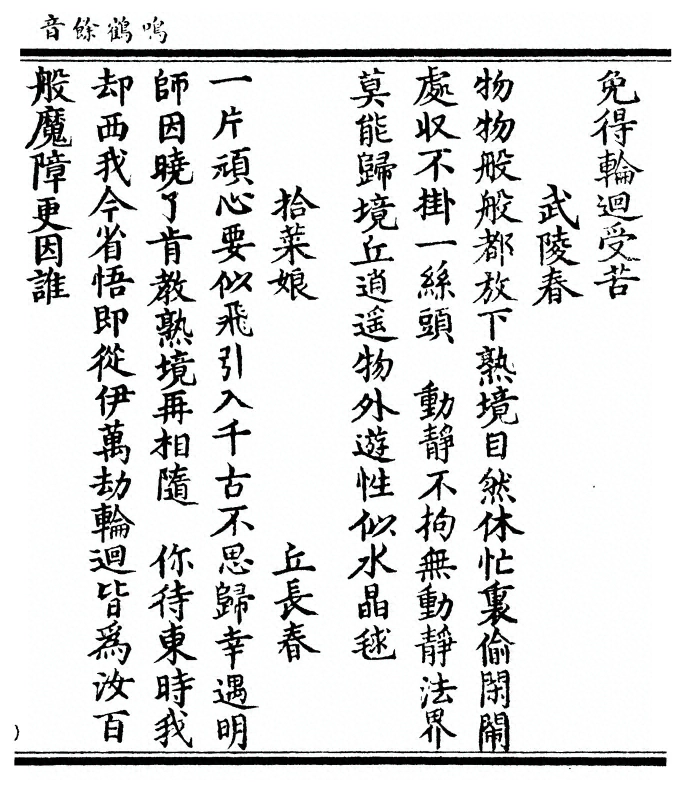 鳴鶴餘音
免得輪迴受苦
武陵春
物物般般都放下熟境目然休忙裏偷閑鬧
處収不掛一絲頭　動靜不拘無動靜法界
莫能歸境丘逍遥物外遊性似水晶毬
拾菜娘　丘長春
一片頑心要似飛引入千古不思歸幸遇明
師因曉了肯教熟境再相隨　你待東時我
却西我今省悟即從伊萬劫輪迴皆為汝百
般魔障更因誰